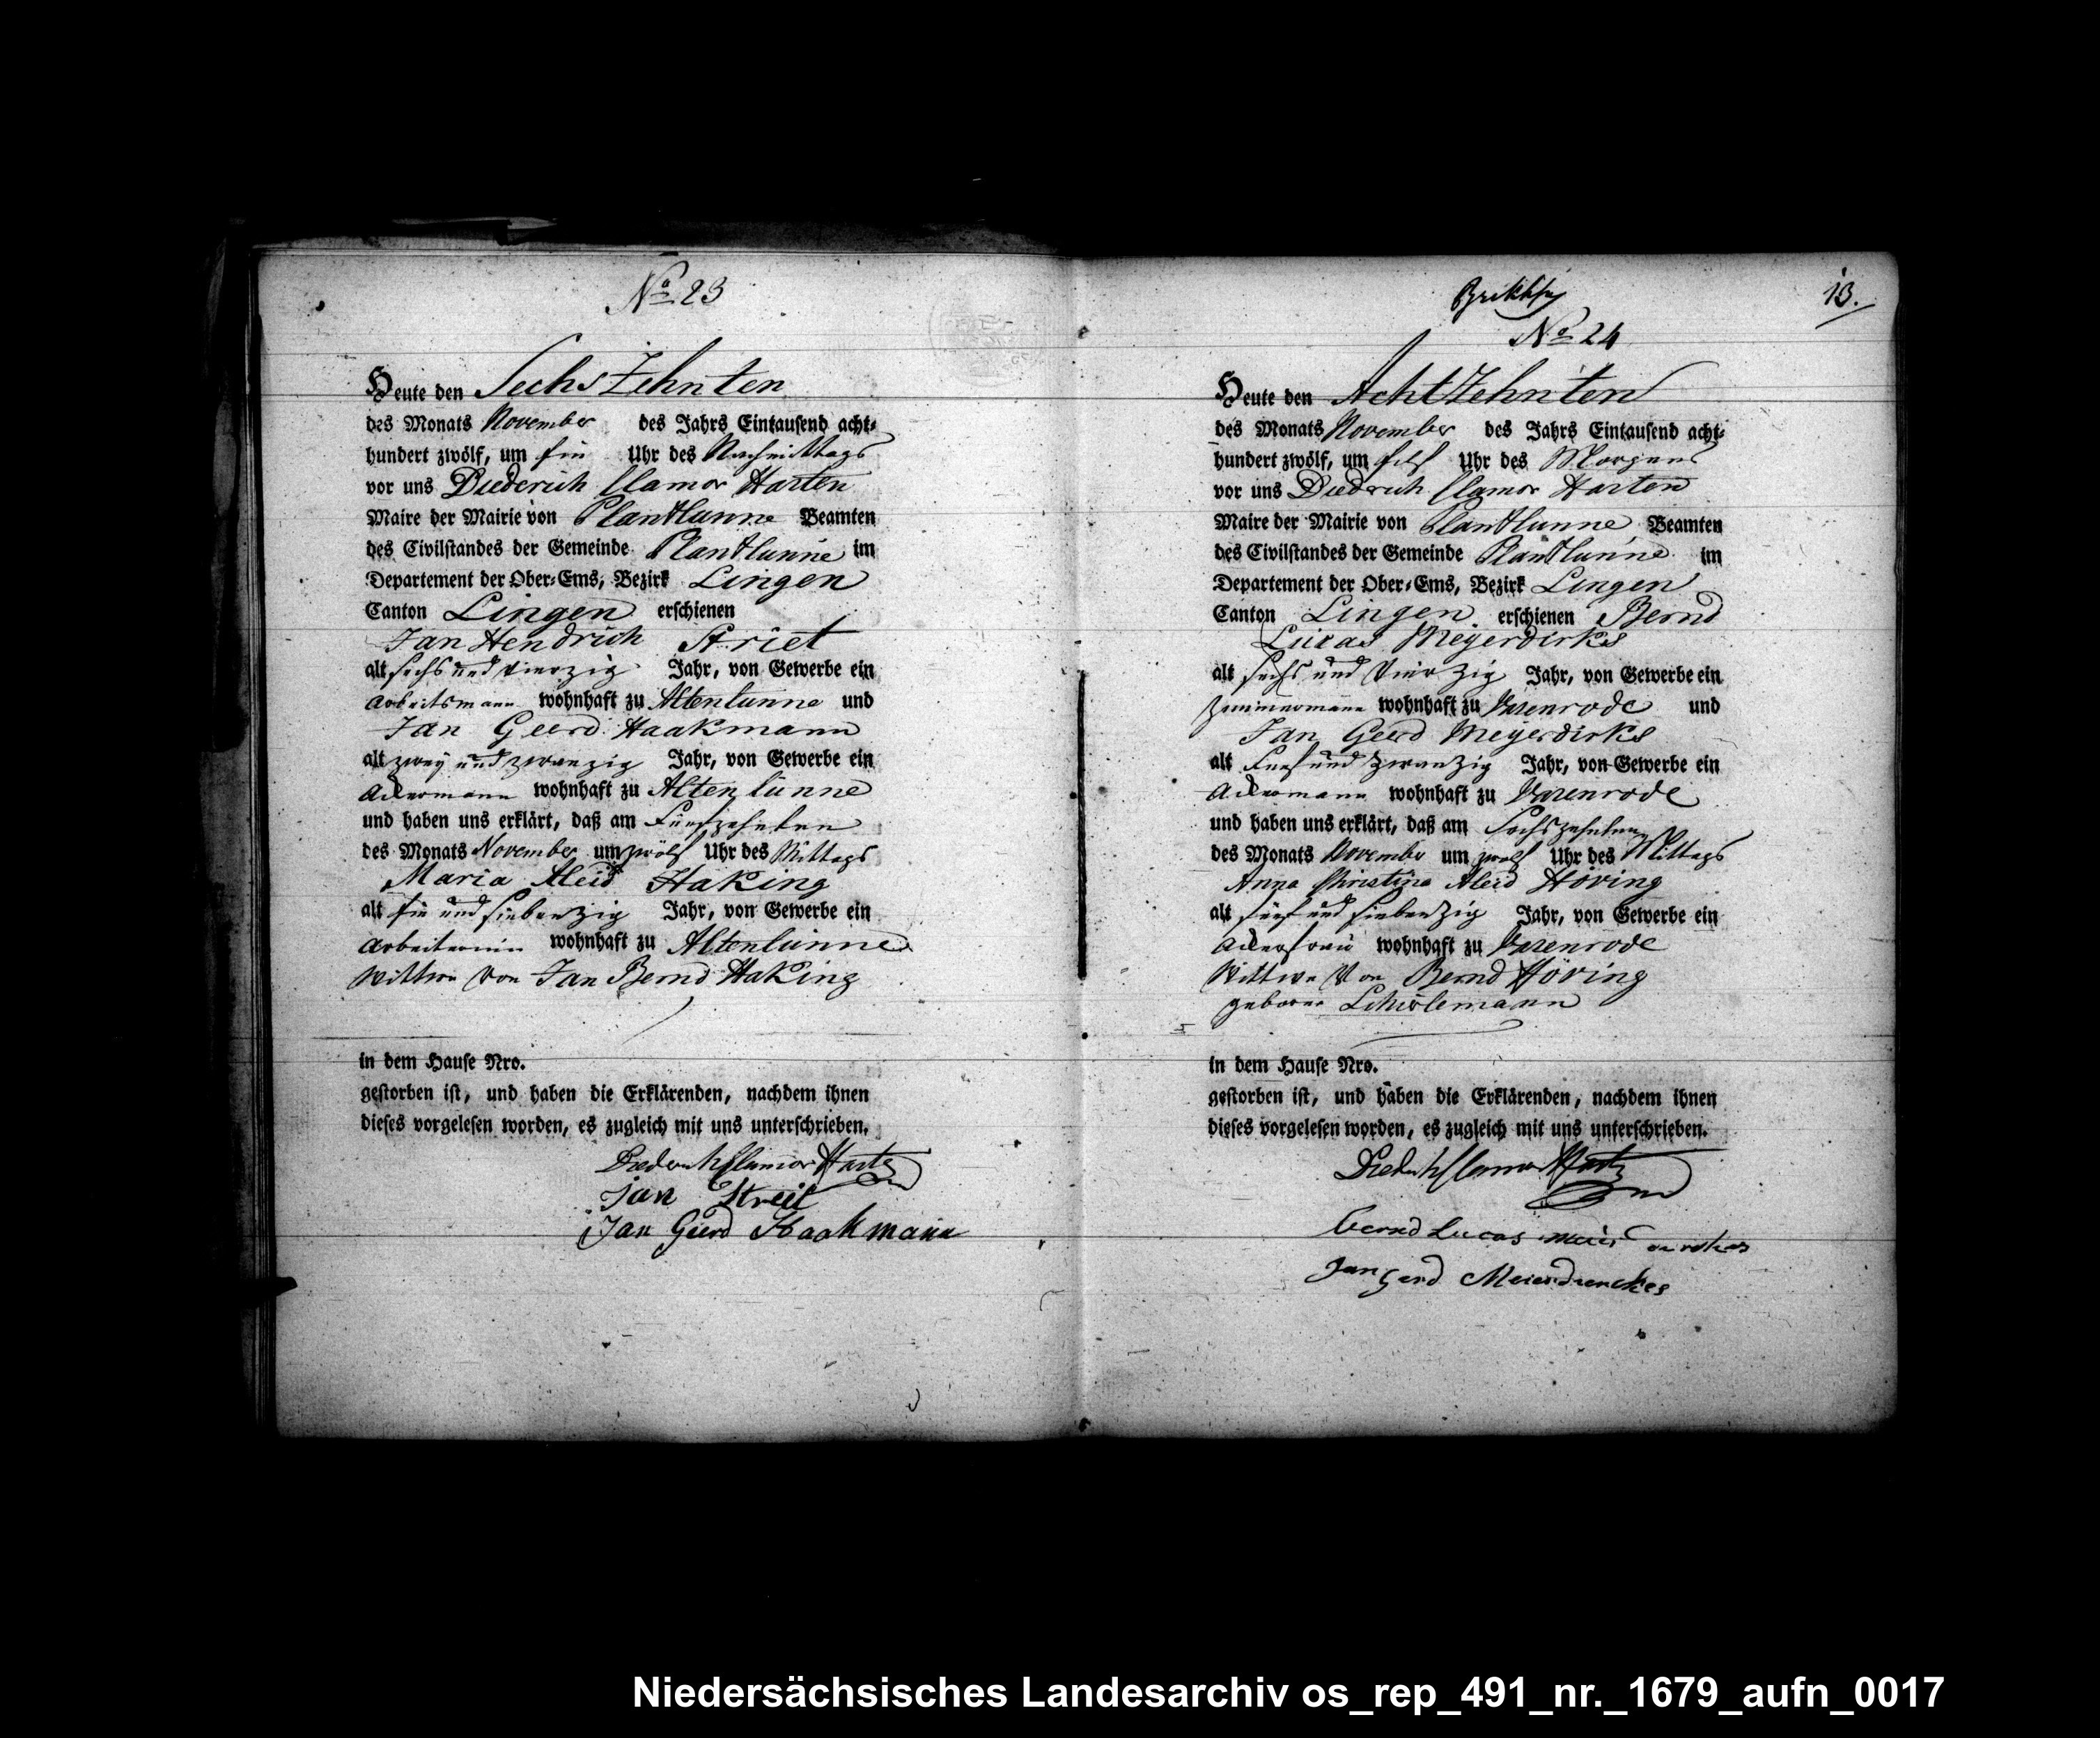 No 23
Heute den Sechszehnten
des Monats November des Jahrs Eintausend acht-
hundert zwölf, um ein Uhr des Nachmittags
vor uns Diederich Clamor Harten
Maire der Mairie von Plantlunne Beamten
des Civilstandes der Gemeinde Plantlunne im
Departement der Ober-Ems, Bezirk Lingen
Canton Lingen erschienen
Jan Hendrich Striet
alt sechs und vierzig Jahr, von Gewerbe ein
Arbeitsmann wohnhaft zu Altenlünne und
Jan Geerd Haakmann
alt zwey und zwanzig Jahr, von Gewerbe ein
Ackermann wohnhaft zu Altenlünne
und haben uns erklärt, daß am Fünfzehnten
des Monats November um zwölf Uhr des Mittags
Maria Aleid Haking
alt ein und siebenzig Jahr, von Gewerbe ein
Arbeiterinn wohnhaft zu Altenlünne
Wittwe von Jan Bernd Haking
in dem Hause Nro.
gestorben ist, und haben die Erklärenden, nachdem ihnen
dieses vorgelesen worden, es zugleich mit uns unterschrieben.
Diederich Clamor Harten
Jan Streit
Jan Gierd Haakmann
13.
No 24
Heute den Achtzehnten
des Monats November des Jahrs Eintausend acht-
hundert zwölf, um elf Uhr des Morgens
vor uns Diedrich Clamor Harten
Maire der Mairie von Plantlunne Beamten
des Civilstandes der Gemeinde Plantlunne im
Departement der Ober-Ems, Bezirk Lingen
Canton Lingen erschienen Bernd
Lucas Meyerdirks
alt sechs und vierzig Jahr, von Gewerbe ein
Zimmermann wohnhaft zu Varenrode und
Jan Geerd Meyerdirks
alt Fünf und zwanzig Jahr, von Gewerbe ein
Ackermann wohnhaft zu Varenrode
und haben uns erklärt, daß am Sechszehnten
des Monats November um zwölf Uhr des Mittags
Anna Christina Aleid Höving
alt fünf und siebenzig Jahr, von Gewerbe ein
Ackersfrau wohnhaft zu Varenrode
Wittwe von Bernd Höving
geborne
in dem Hause Nro.
gestorben ist, und haben die Erklärenden, nachdem ihnen
dieses vorgelesen worden, es zugleich mit uns unterschrieben.
Diederich Clamor Harten
bernd Lucas
Jan Gerd
Niedersächsisches Landesarchiv os_rep_491_nr._1679_aufn_0017